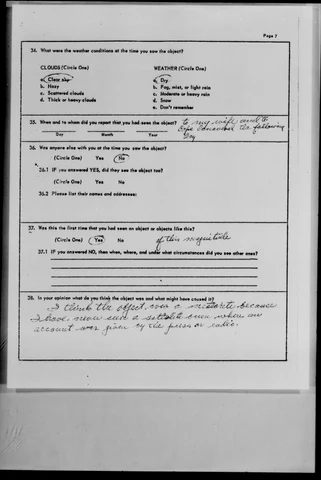 Page 7
34. What were the weather conditions at the time you saw the object?
CLOUDS (Circle One) WEATHER (Circle One)
a. Clear sky a. Dry
b. Hazy b. Fog, mist, or light rain
c. Scattered clouds c. Moderate or heavy rain
d. Thick or heavy clouds d. Snow
e. Don't remember
35. When and to whom did you report that you had seen the object? to my wife and to
the following
Day Month Year Day
36. Was anyone else with you at the time you saw the object?
(Circle One) Yes No
36.1 IF you answered YES, did they see the object too?
(Circle One) Yes No
36.2 Please list their names and addresses:
37. Was this the first time that you had seen an object or objects like this?
(Circle One) Yes No of this magnitude
37.1 IF you answered NO, then when, where, and under what circumstances did you see other ones?
38. In your opinion what do you think the object was and what might have caused it?
I think the object was a meteorite because
I have never seen a satellite even when an
account was given by the press or radio.